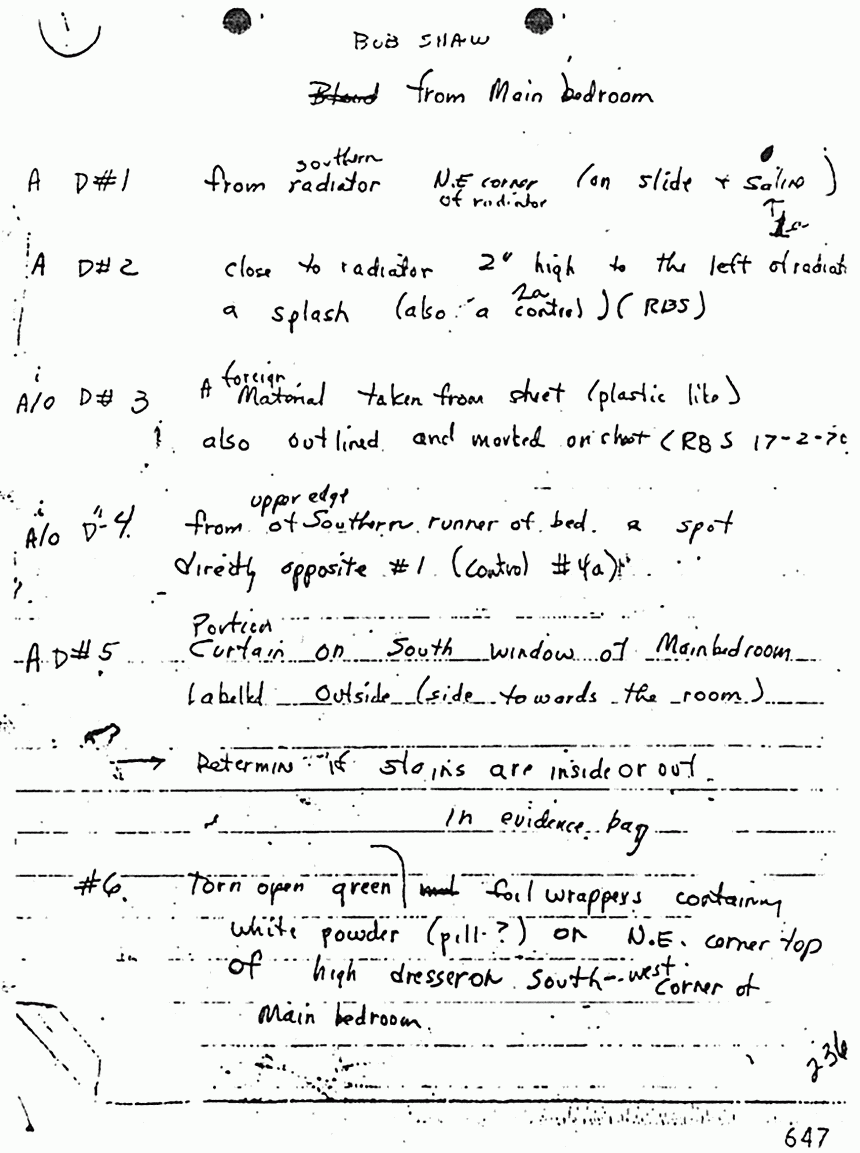 BOB SHAW
Blood from Main bedroom
southern
A D#1 from radiator N.E corner (on slide + saline)
of radiator
1a
A D#2 close to radiator 2" high to the left of radiat
2a
a splash (also a control) (RBS)
i foreign
A/O D#3 A Material taken from sheet (plastic like)
also outlined and marked on sheet (RBS 17-2-70
i upper edge
A/O D-4 from of Southern runner of bed. a spot
directly opposite #1. (control #4a)
Portion
A D#5 Curtain on South window of Main bedroom
labelld outside (side towards the room)
→ Determin if stains are inside or out
in evidence bag
#6. Torn open green foil wrappers containing
white powder (pill-?) on N.E. corner top
of high dresser on South-west corner of
Main bedroom.
236
647